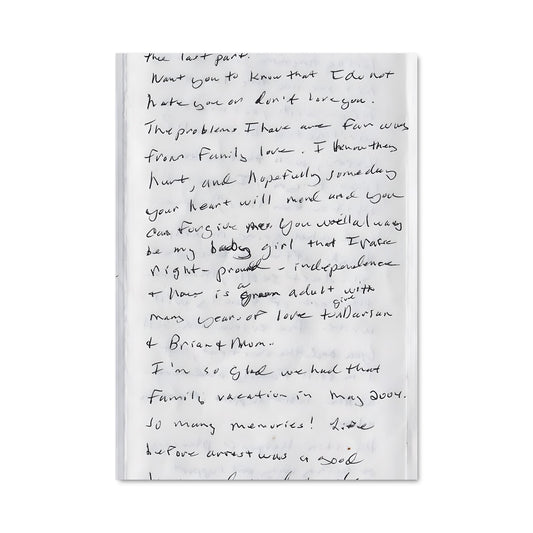 the last part.
Want you to know that I do not
hate you or don't love you.
The problems I have are far away
from family love. I know they
hurt, and hopefully someday
your heart will mend and you
can forgive me. You will always
be my baby girl that I raise
right - proud - independence
+ how is a grown adult with
many years of love to give Darian
+ Brian + Mom.
I'm so glad we had that
family vacation in May 2004.
So many memories! Life
before arrest was a good